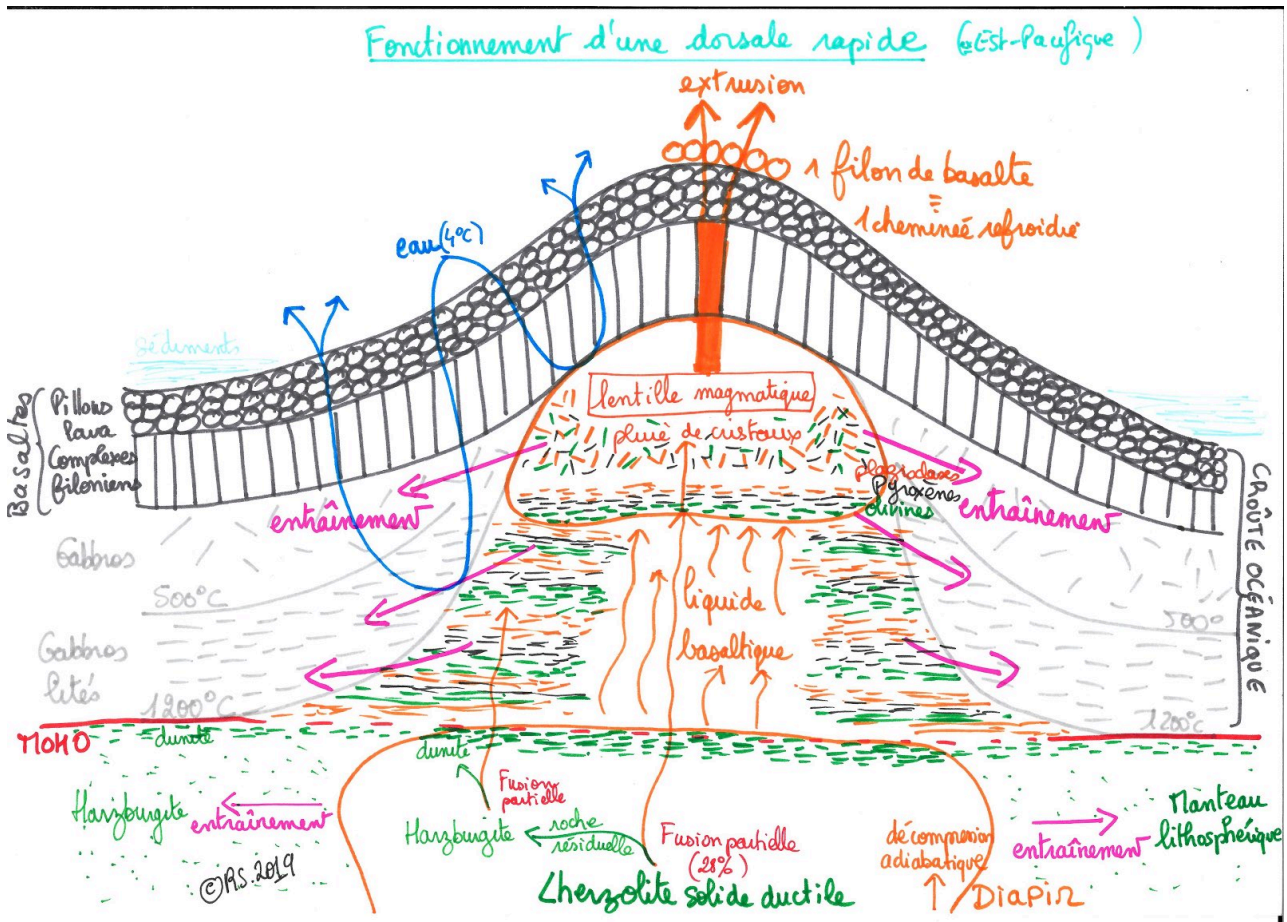 Fonctionnement d'une dorsale rapide (Est-Pacifique)
extrusion
1 filon de basalte
=
1 cheminée refroidie
eau (4°C)
Sédiments
Basaltes
Pillows
lava
Complexes
filoniens
lentille magmatique
pluie de cristaux
plagioclases
Pyroxènes
olivines
entraînement
entraînement
CROÛTE OCÉANIQUE
Gabbros
500°C
500°
liquide
basaltique
Gabbros
lités
1200°C
1200°C
MOHO
dunité
dunité
Harzburgite
entraînement
Fusion
partielle
Harzburgite
roche
résiduelle
Fusion partielle
(28%)
décompression
adiabatique
entraînement
Manteau
lithosphérique
©RS.2019
Lherzolite solide ductile
DIAPIR